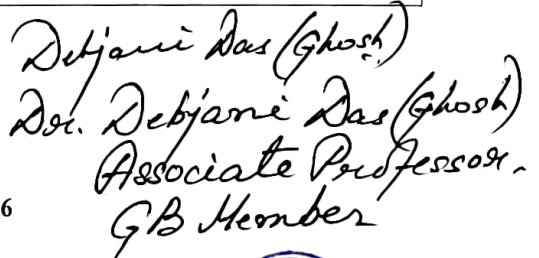 Debjani Das (Ghosh)
Dr. Debjani Das (Ghosh)
Associate Professor.
6
GB Member